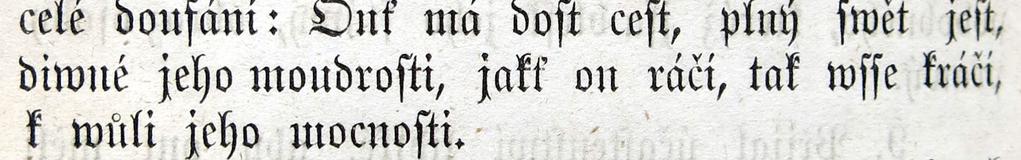 celé doufání: Onk má dost cest, plný swět jest,
diwné jeho moudrosti, jakk on ráčí, tak wsse kráčí,
k wůli jeho mocnosti.